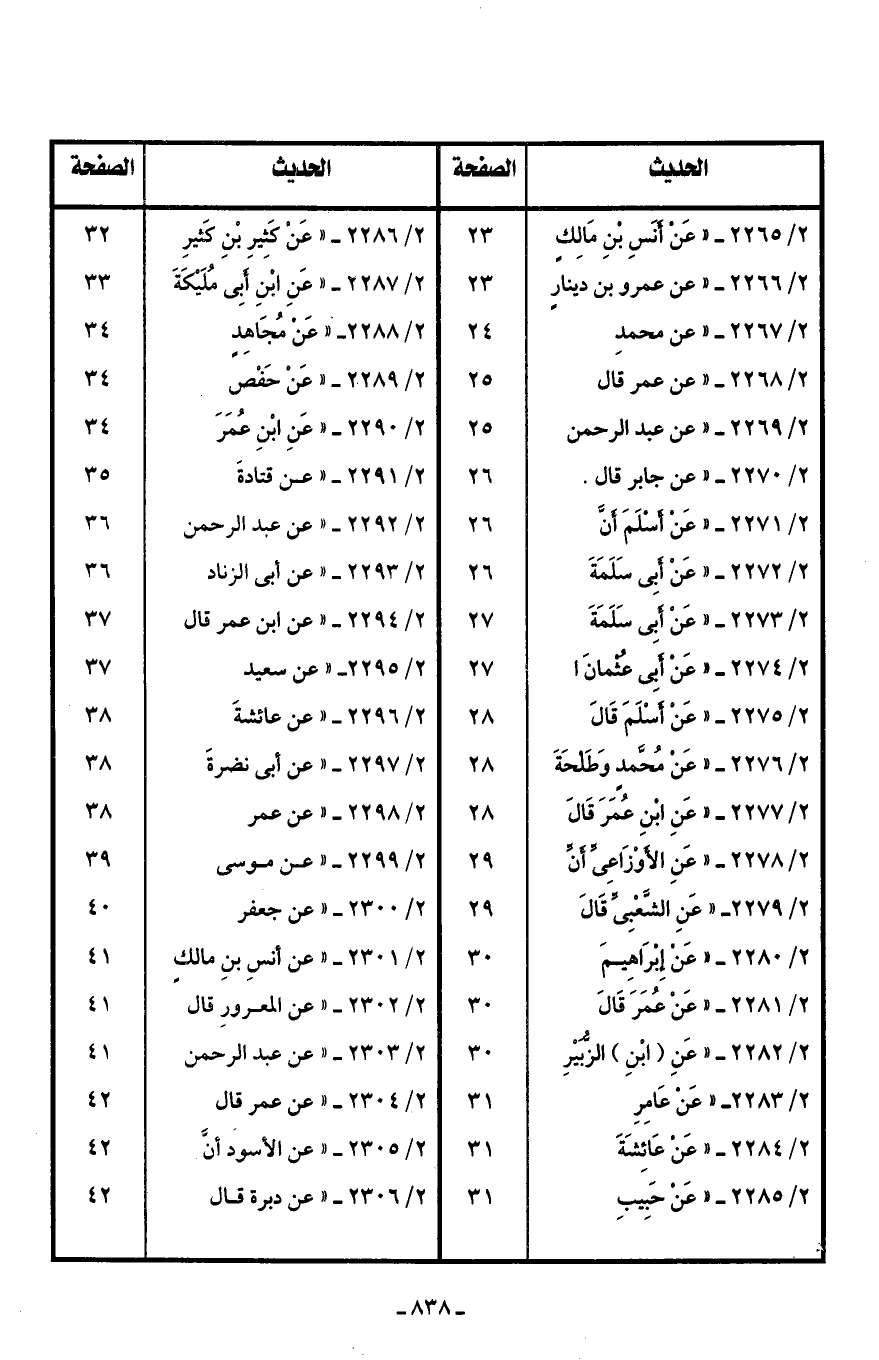 الحديث الصفحة
٢/ ٢٢٦٥ ـ « عَنْ أَنَسِ بْنِ مَالِكٍ ٢٣
٢/ ٢٢٦٦ ـ « عن عمرو بن دينارٍ ٢٣
٢/ ٢٢٦٧ ـ « عن محمدِ ٢٤
٢/ ٢٢٦٨ ـ « عن عمر قال ٢٥
٢/ ٢٢٦٩ ـ « عن عبد الرحمن ٢٥
٢/ ٢٢٧٠ ـ « عن جابر قال . ٢٦
٢/ ٢٢٧١ ـ « عَنْ أَسْلَمَ أَنَّ ٢٦
٢/ ٢٢٧٢ ـ « عَنْ أَبِى سَلَمَةَ ٢٦
٢/ ٢٢٧٣ ـ « عَنْ أَبِى سَلَمَةَ ٢٧
٢/ ٢٢٧٤ ـ « عَنْ أَبِى عُثْمانَ ا ٢٧
٢/ ٢٢٧٥ ـ « عَنْ أَسْلَمَ قَالَ ٢٨
٢/ ٢٢٧٦ ـ « عَنْ مُحَّمدٍ وَطَلْحَةَ ٢٨
٢/ ٢٢٧٧ ـ « عَنِ ابْنِ عُمَرَ قَالَ ٢٨
٢/ ٢٢٧٨ ـ « عَنِ الأَوْزَاعِىِّ أَنَّ ٢٩
٢/ ٢٢٧٩ـ « عَنِ الشَّعْبِىِّ قَالَ ٢٩
٢/ ٢٢٨٠ ـ « عَنْ إِبْرَاهِيـمَ ٣٠
٢/ ٢٢٨١ ـ « عَنْ عُمَرَ قَالَ ٣٠
٢/ ٢٢٨٢ ـ « عَنِ ( ابْنِ ) الزُّبَيْرِ ٣٠
٢/ ٢٢٨٣ـ « عَنْ عَامِرِ ٣١
٢/ ٢٢٨٤ ـ « عَنْ عَائِشَةَ ٣١
٢/ ٢٢٨٥ ـ « عَنْ حَبِيبِ ٣١
الحديث الصفحة
٢/ ٢٢٨٦ ـ « عَنْ كَثِيرِ بْنِ كَثيرِ ٣٢
٢/ ٢٢٨٧ ـ « عَنِ ابْنِ أَبِى مُلَيْكَةَ ٣٣
٢/ ٢٢٨٨ـ « عَنْ مُجَاهِدٍ ٣٤
٢/ ٢٢٨٩ ـ « عَنْ حَفْصِ ٣٤
٢/ ٢٢٩٠ ـ « عَنِ ابْنِ عُمَرَ ٣٤
٢/ ٢٢٩١ ـ « عـن قتادةَ ٣٥
٢/ ٢٢٩٢ ـ « عن عبد الرحمن ٣٦
٢/ ٢٢٩٣ ـ « عن أبى الزناد ٣٦
٢/ ٢٢٩٤ ـ « عن ابن عمر قال ٣٧
٢/ ٢٢٩٥ـ « عن سعيد ٣٧
٢/ ٢٢٩٦ ـ « عن عائشةَ ٣٨
٢/ ٢٢٩٧ ـ « عن أبى نضرةَ ٣٨
٢/ ٢٢٩٨ ـ « عن عمر ٣٨
٢/ ٢٢٩٩ ـ « عـن مـوسى ٣٩
٢/ ٢٣٠٠ ـ « عن جعفر ٤٠
٢/ ٢٣٠١ ـ « عن أنسِ بنِ مالكٍ ٤١
٢/ ٢٣٠٢ ـ « عن المعـرورِ قال ٤١
٢/ ٢٣٠٣ ـ « عن عبد الرحمن ٤١
٢/ ٢٣٠٤ ـ « عن عمر قال ٤٢
٢/ ٢٣٠٥ ـ « عن الأسود أنَّ ٤٢
٢/ ٢٣٠٦ ـ « عن دبرة قـال ٤٢
ـ ٨٣٨ ـ